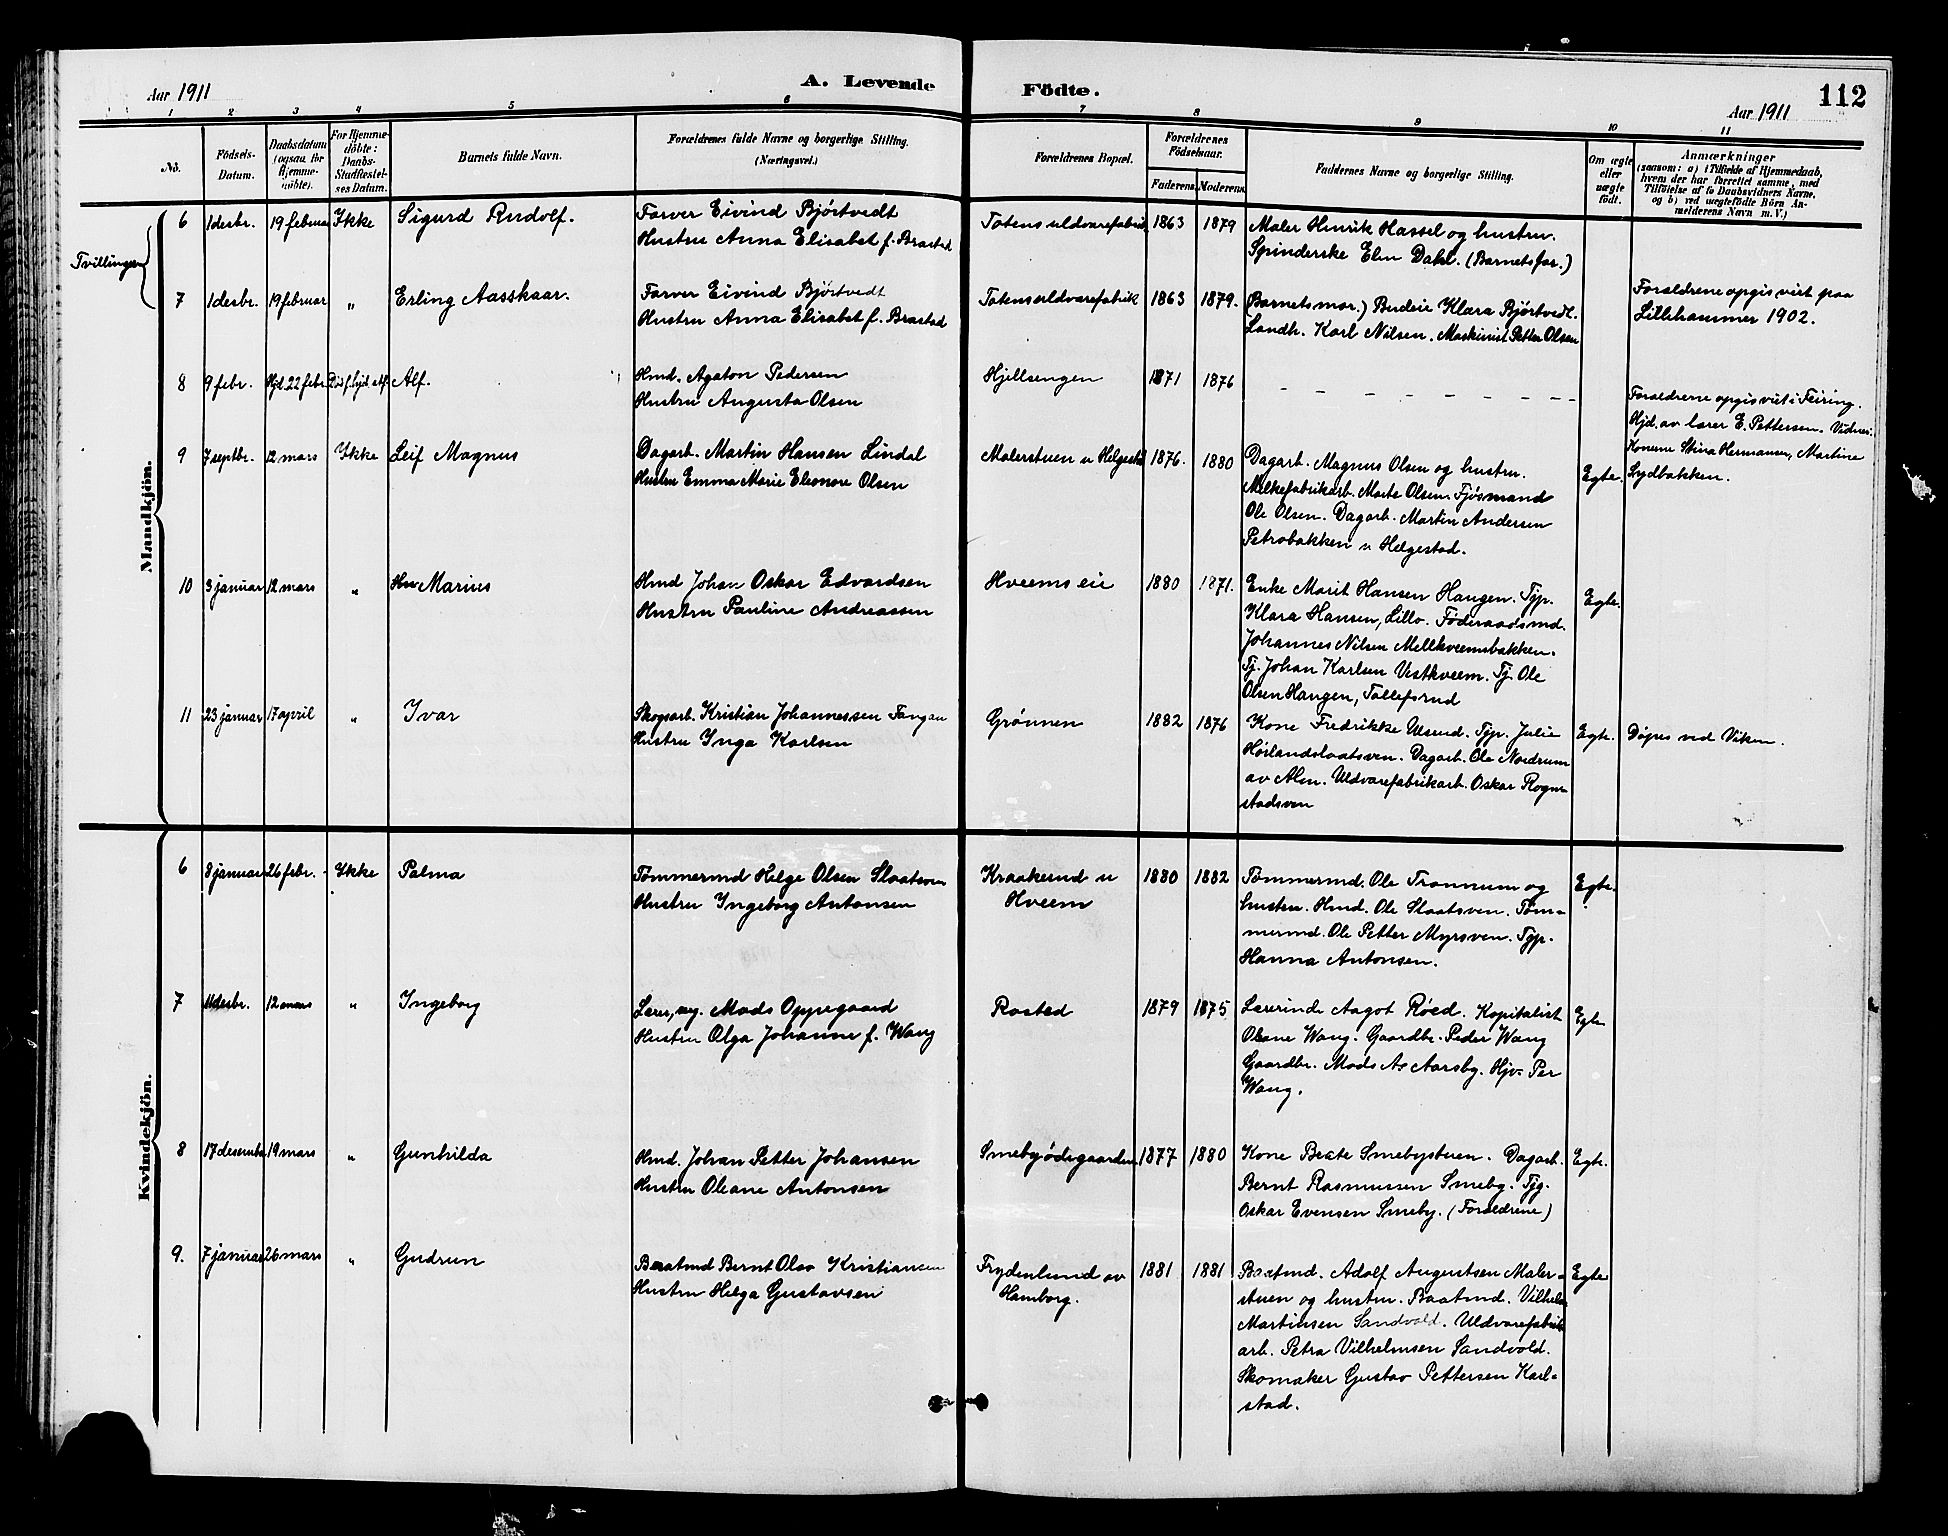 Aar 1911
A. Levende
Födte.
Aar 1911
112
1 2 3 4 5 6 7 8 9 10 11
No.
Födsels-Datum.
Daabsdatum (ogsaa for Hjemme-döbte).
For Hjemme-döbte: Daabs-Stadfæstel-ses Datum.
Barnets fulde Navn.
Forældrenes fulde Navne og borgerlige Stilling.
(Næringsvei.)
Forældrenes Bopæl.
Forældrenes Födselsaar.
Faderens. Moderens.
Faddernes Navne og borgerlige Stilling.
Om ægte eller uægte födt.
Anmærkninger
(saasom: a) i Tilfælde af Hjemmedaab, hvem der har forrettet samme, med Tilföielse af to Daabsvidners Navne, og b) ved uægtefödte Börn An-melderens Navn m. V.)
Mandkjön.
Tvillinger
6 1 desbr. 19 februar Ikke Sigurd Rudolf.
Farver Eivind Bjørtvedt
Hustru Anna Elisabet f. Brastad
Totens uldvarefabrik 1863 1879
Maler Henrik Hassel og hustru.
Spinderske Elen Dahl. (Barnets far.)
7 1 desbr. 19 februar " Erling Aasskaar.
Farver Eivind Bjørtvedt
Hustru Anna Elisabet f. Brastad
Totens uldvarefabrik 1863 1879.
(Barnets mor.) Budeie Klara Bjørtvedt.
Landh. Karl Nilsen. Maskinist Petter Olsen
Forældrene opgis viet paa
Lillehammer 1902.
8 9 febr. Hjd. 22 febr. Død f. hjd. stf. Alf.
Hmd. Agaton Pedersen
Hustru Augusta Olsen
Hjellsengen 1871 1876
Forældrene opgis viet i Feiring.
Hjd. av lærer E. Pettersen. Vidner:
Konerne Stina Hermansen, Martine
Lydbakken.
9 7 septbr. 12 mars Ikke Leif Magnus
Dagarb. Martin Hansen Lindal
Hustru Emma Marie Eleonore Olsen
Malerstuen u Helgestad 1876. 1880
Dagarb. Magnus Olsen og hustru.
Melkefabrikarb. Marte Olsen. Fjøsmand
Ole Olsen. Dagarb. Martin Andersen
Petrobakken u Helgestad.
Egte.
10 3 januar 12 mars " Marius
Hmd Johan Oskar Edvardsen
Hustru Pauline Andreassen
Hveems eie 1880 1871.
Enke Marit Hansen Haugen. Typ.
Klara Hansen, Lillo. Føderaadsmd.
Johannes Nilsen Mellkveemsbakken.
Tj. Johan Karlsen Vestkveem. Tj. Ole
Olsen Haugen, Tollefsrud
Egte.
11 23 januar 17 april " Ivar
Skogsarb. Kristian Johannessen
Hustru Inga Karlsen
Grønnen 1882 1876
Kone Fredrikke Ulsrud. Typ. Julie
Hørlandslaatsven. Dagarb. Ole Nordrum
av Alm. Uldvarefabrikarb. Oskar Rogne-
stadsven
Egte. Døpes ved Viken.
Kvindekjön.
6 8 januar 26 febr. Ikke Palma
Tømmermd Helge Olsen Slaatsven
Hustru Ingeborg Antonsen
Kraakerud u
Hveem
1880 1882
Tømmermd. Ole Tronnum og
hustru. Hmd. Ole Slaatsven. Tøm-
mermd. Ole Petter Myrsven. Typ.
Hanna Antonsen.
Egte.
7 11 desbr. 12 mars " Ingeborg
Lærer, ug. Mads Oppegaard
Hustru Olga Johanne f. Wang
Rostad 1879 1875
Lærerinde Aagot Røed. Kapitalist
Oleane Wang. Gaardbr. Peder Wang
Gaardbr. Mads As Aarsby. Hjv. Per
Wang.
Egte
8 17 desember 19 mars " Gunhilda
Hmd. Johan Petter Johansen
Hustru Oleane Antonsen
Smebyødegaarden 1877 1880
Kone Beate Smebystuen. Dagarb.
Bernt Rasmussen Smeby. Tjg.
Oskar Evensen Smeby. (Forældrene)
Egte.
9. 7 januar 26 mars " Gudrun
Baatmd Bernt Olav Kristiansen
Hustru Helga Gustavsen
Frydenlund av
Hamborg.
1881 1881
Baatmd. Adolf Augustsen Maler-
stuen og hustru. Baatmd. Vilhelm
Martinsen Sandvold. Uldvarefabrik
arb. Petra Vilhelmsen Sandvold.
Skomaker Gustav Pettersen Karl-
stad.
Egte